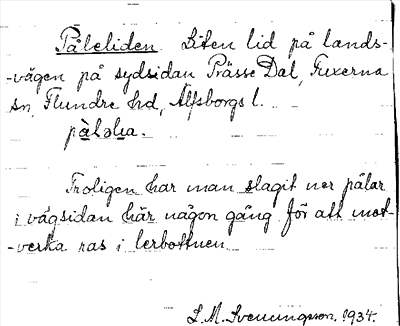 Påleliden. Liten lid på lands-
-vägen på sydsidan Prässe Dal, Fuxerna
sn, Flundre hd, Älfsborgs l.
pålǝlia.
Troligen har man slagit ner pålar
i vägsidan här någon gång för att mot-
-verka ras i lerbottnen.
L.M. Svenungsson. 1934.